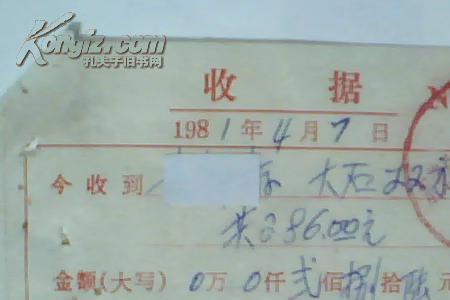 Kongfz.com
孔夫子旧书网
收 据
1981年4月7日
今收到 大石
共286.00元
金额(大写) 0万 0仟 弍佰捌拾陆元